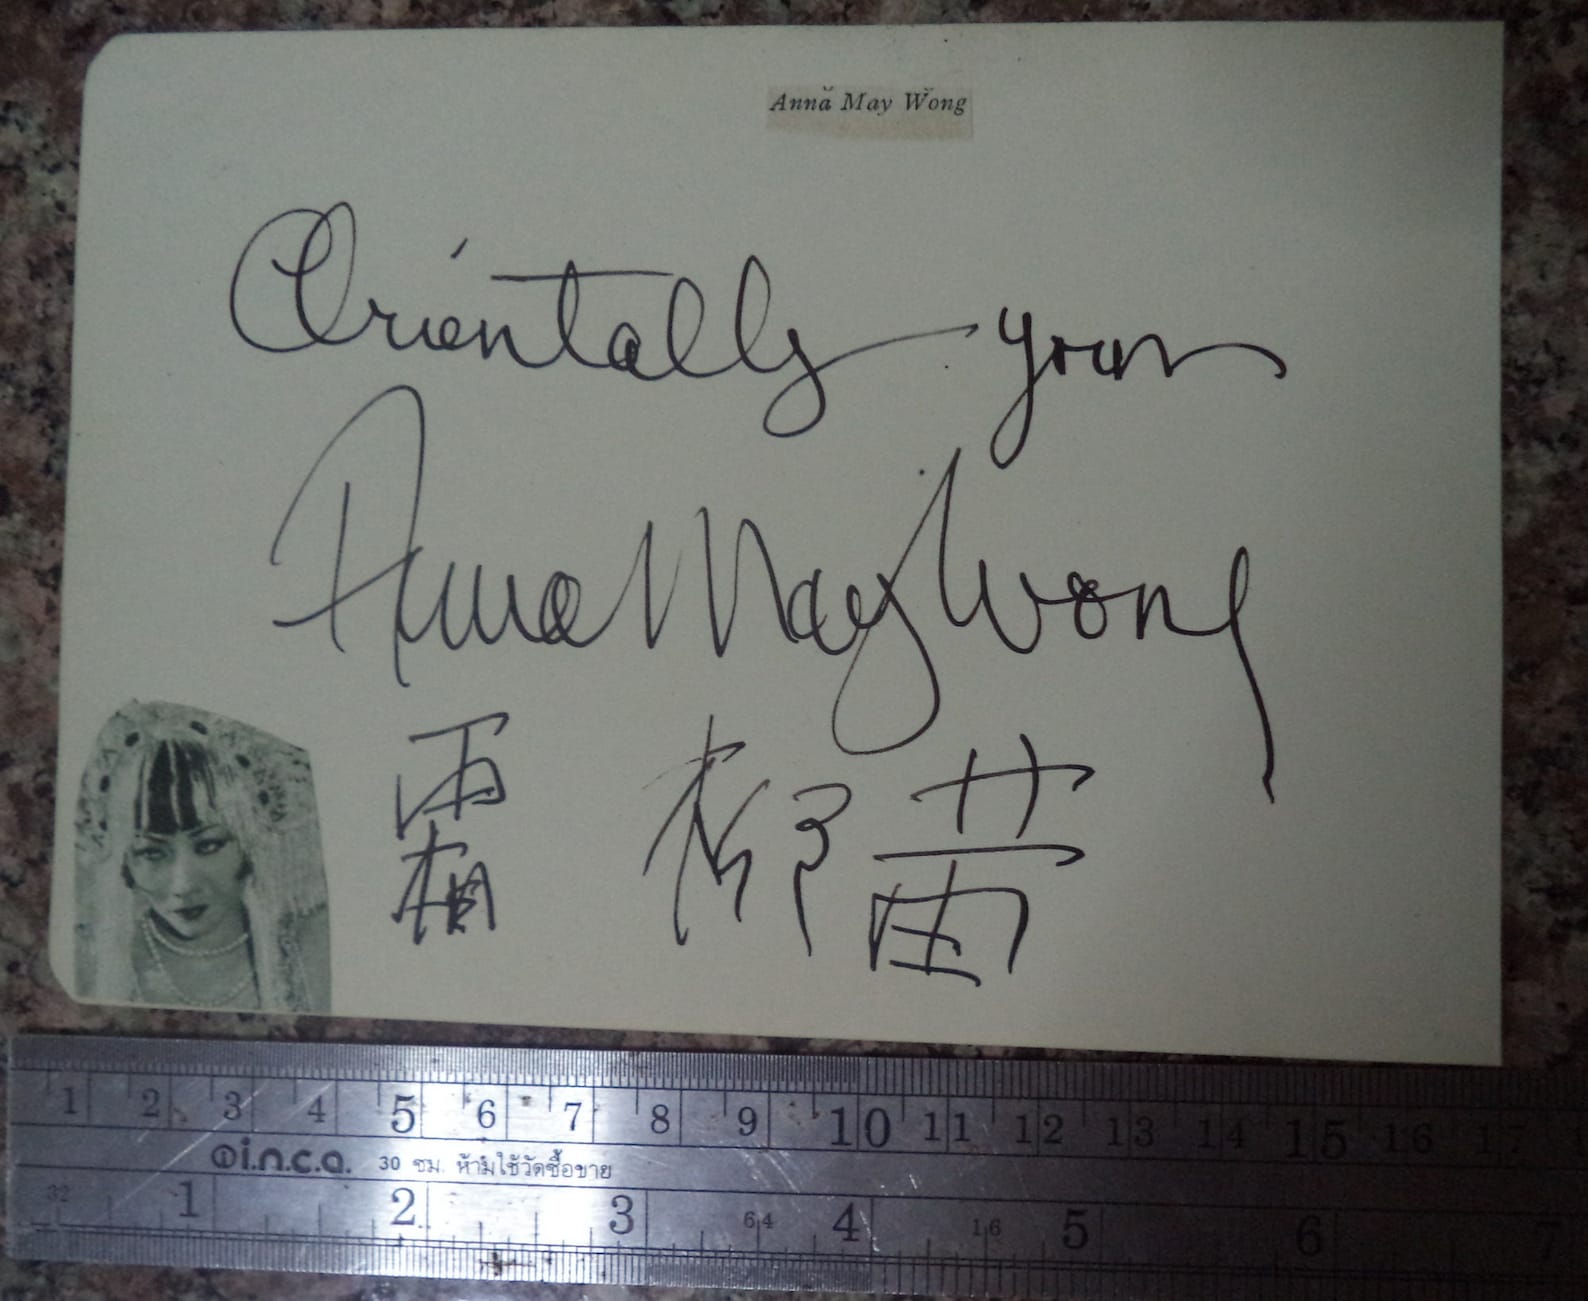 Anna May Wong
Orientally yours
Anna May Wong
霜 柳 黃
1 2 3 4 5 6 7 8 9 10 11 12 13 14 15 16 17
i.n.c.o. 30 ซม. ห้ามใช้วัดซื้อขาย
32 1 2 3 64 4 16 5 6 7